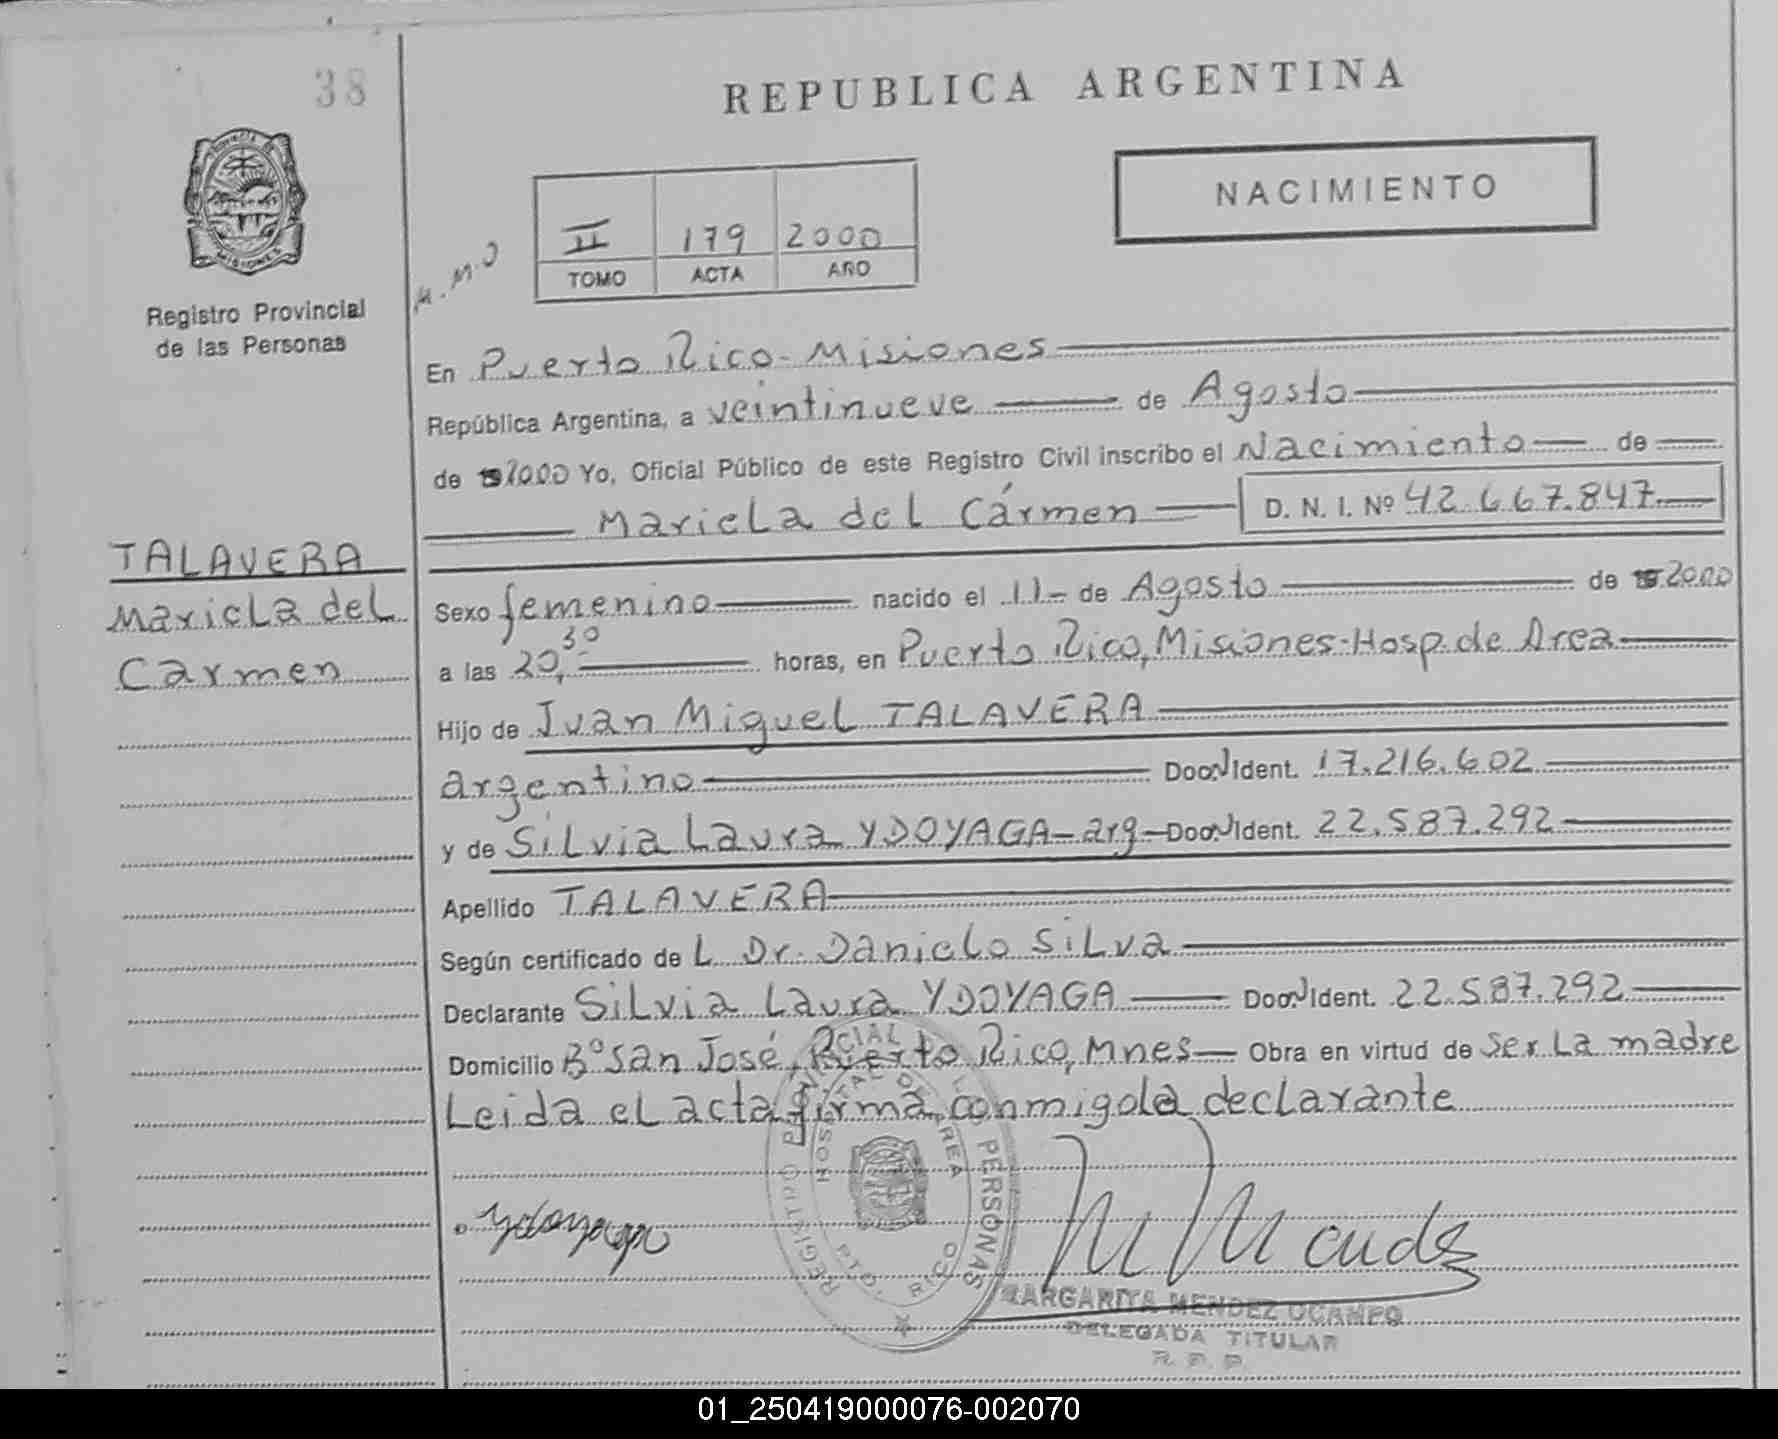 38
REPUBLICA ARGENTINA
NACIMIENTO
II 179 2000
TOMO ACTA AÑO
M.M.O
MISIONES
Registro Provincial
de las Personas
En Puerto Rico - Misiones
República Argentina, a veintinueve de Agosto
de 2000 Yo, Oficial Público de este Registro Civil inscribo el Nacimiento de
Mariela del Cármen D. N. I. Nº 42.667.847
TALAVERA
Mariela del
Carmen
Sexo femenino nacido el 11 - de Agosto de 2000
a las 20,30 horas, en Puerto Rico, Misiones - Hosp. de Area
Hijo de Juan Miguel TALAVERA
argentino Doc. Ident. 17.216.602
y de Silvia Laura YDOYAGA - arg - Doc. Ident. 22.587.292
Apellido TALAVERA
Según certificado de L Dr. Danielo Silva
Declarante Silvia Laura YDOYAGA Doc. Ident. 22.587.292
Domicilio Bº San José, Puerto Rico, Mnes - Obra en virtud de ser La madre
Leida el acta firma conmigo la declarante
Ydoyaga
HOSPITAL DE AREA
PTO. RICO
PERSONAS
MARGARITA MENDEZ OCAMPO
DELEGADA TITULAR
R. P. P.
01_250419000076-002070